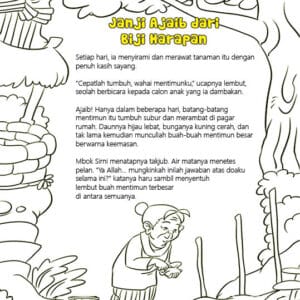 Janji Ajaib dari
Biji Harapan
Setiap hari, ia menyirami dan merawat tanaman itu dengan
penuh kasih sayang.
"Cepatlah tumbuh, wahai mentimunku," ucapnya lembut,
seolah berbicara kepada calon anak yang ia dambakan.
Ajaib! Hanya dalam beberapa hari, batang-batang
mentimun itu tumbuh subur dan merambat di pagar
rumah. Daunnya hijau lebat, bunganya kuning cerah, dan
tak lama kemudian muncullah buah-buah mentimun besar
berwarna keemasan.
Mbok Sirni menatapnya takjub. Air matanya menetes
pelan. "Ya Allah... mungkinkah inilah jawaban atas doaku
selama ini?" katanya haru sambil menyentuh
lembut buah mentimun terbesar
di antara semuanya.